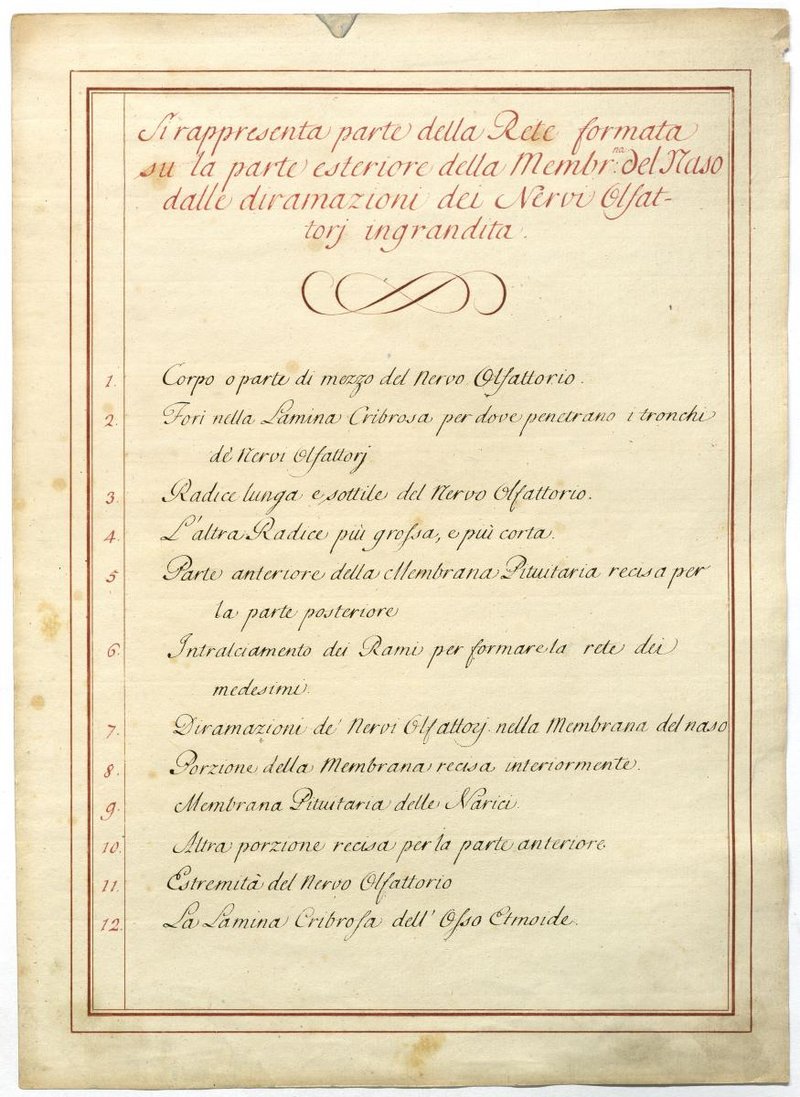 Si rappresenta parte della Rete formata
su la parte esteriore della Membr:na del Naso
dalle diramazioni dei Nervi Olfat-
torj ingrandita.
1. Corpo o parte di mezzo del Nervo Olfattorio.
2. Fori nella Lamina Cribrosa per dove penetrano i tronchi
de' Nervi Olfattorj
3. Radice lunga e sottile del Nervo Olfattorio.
4. L'altra Radice più grossa, e più corta.
5 Parte anteriore della Membrana Pituitaria recisa per
la parte posteriore
6. Intralciamento dei Rami per formare la rete dei
medesimi.
7. Diramazioni de' Nervi Olfattorj nella Membrana del naso
8. Porzione della Membrana recisa interiormente.
9. Membrana Pituitaria delle Narici.
10. Altra porzione recisa per la parte anteriore.
11. Estremità del Nervo Olfattorio
12. La Lamina Cribrosa dell' Osso Etmoide.